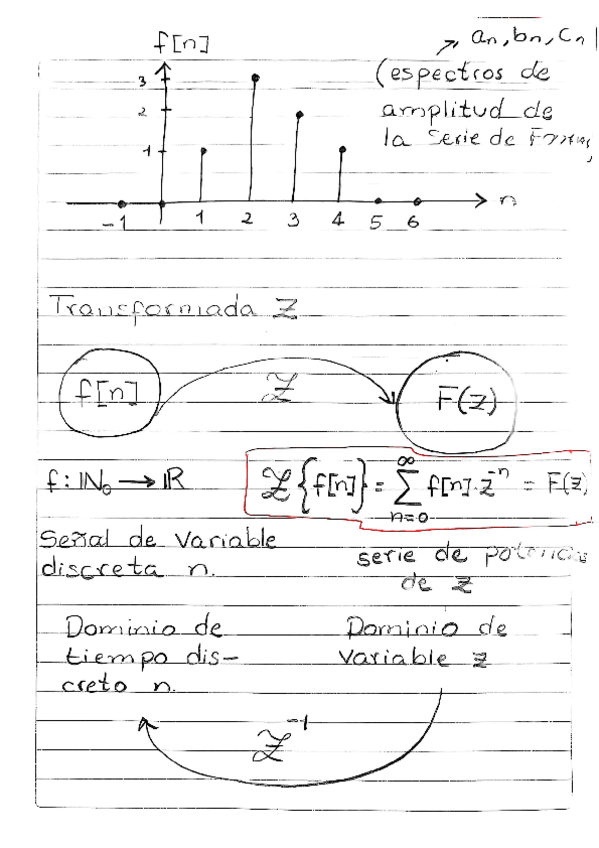 f[n]
→ an, bn, cn
(espectros de
amplitud de
la serie de
3
2
1
n
-1 1 2 3 4 5 6
Transformada Z
f[n] Z F(z)
f: ℕ₀ → ℝ
Z{f[n]} = ∑_{n=0}^{∞} f[n]·z^{-n} = F(z)
Señal de variable
discreta n.
serie de potencias
de z
Dominio de
tiempo dis-
creto n.
Dominio de
variable z
Z^{-1}